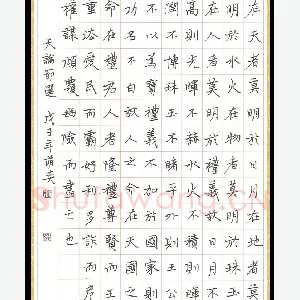 在天者莫明於日月在地者莫
明於水火在物者莫明於珠玉
在人者莫明於禮義故日月不
高則光暉不赫水火不積則暉
潤不博珠玉不睹乎外則王公
不以為寶禮義不加於國家則
功名不白故人之命在天國之
命在禮君人者隆禮尊賢而王
重法愛民而霸好利多詐而危
權謀傾覆幽險而盡亡也
天論節選 戊子年